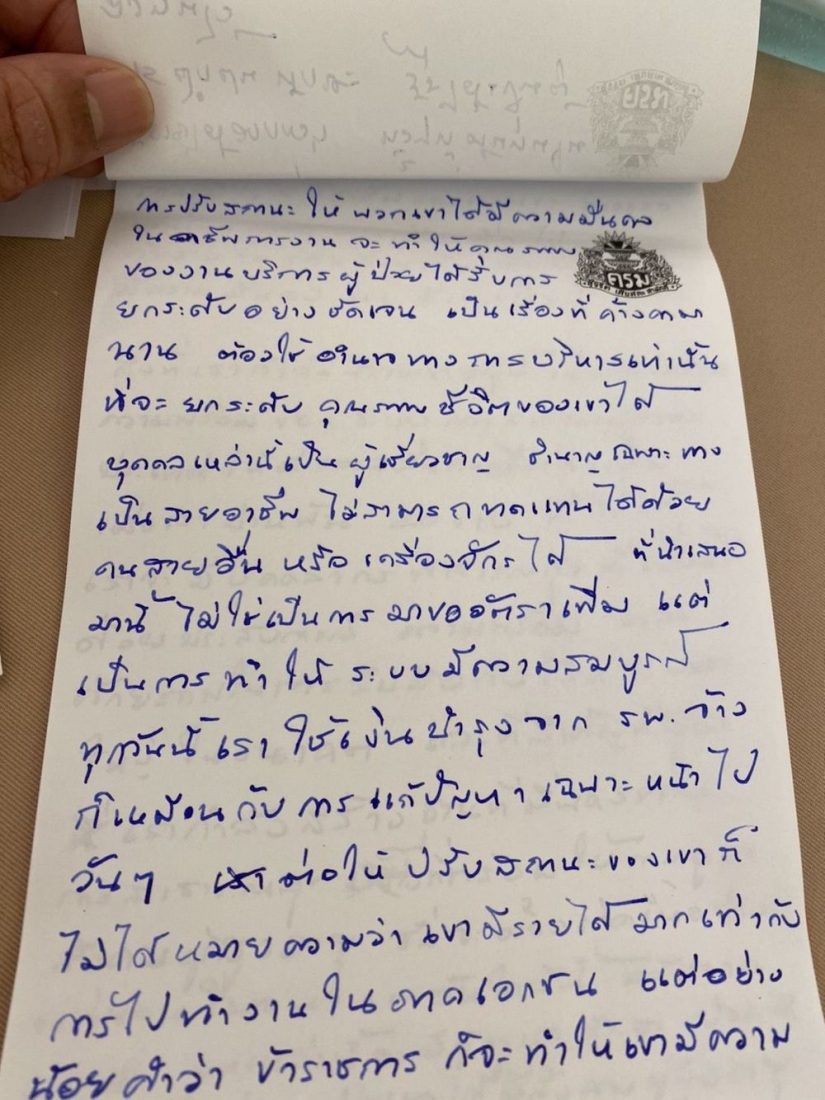 การปรับสถานะ ให้ พวกเขาได้มีความมั่นคง
ใน อาชีพการงาน จะ ทำให้ คุณภาพ
ของงานบริการผู้ป่วยได้รับการ
ครม
ยกระดับอย่างชัดเจน เป็นเรื่องที่ ค้างคามา
นาน ต้องใช้ อำนาจทางการบริหารเท่านั้น
ที่จะ ยกระดับ คุณภาพชีวิตของเขาได้
บุคคลเหล่านี้เป็น ผู้เชี่ยวชาญ ชำนาญเฉพาะทาง
เป็นสายอาชีพ ไม่สามารถทดแทนได้ด้วย
คนสายอื่น หรือ เครื่องจักรได้ ที่นำเสนอ
มานี้ ไม่ใช่เป็นการมาขออัตราเพิ่ม แต่
เป็นการทำให้ ระบบมีความสมบูรณ์
ทุกวันนี้เราใช้เงินบำรุงจาก รพ. จ้าง
ก็เหมือนกับการแก้ปัญหาเฉพาะหน้าไป
วันๆ ต่อให้ ปรับสถานะของเขา ก็
ไม่ได้หมายความว่า เขามีรายได้มากเท่ากับ
การไปทำงานในภาคเอกชน แต่อย่าง
น้อยคำว่า ข้าราชการ ก็จะทำให้เขามีความ